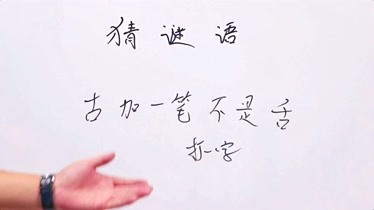 猜谜语
古加一笔不是舌
打一字